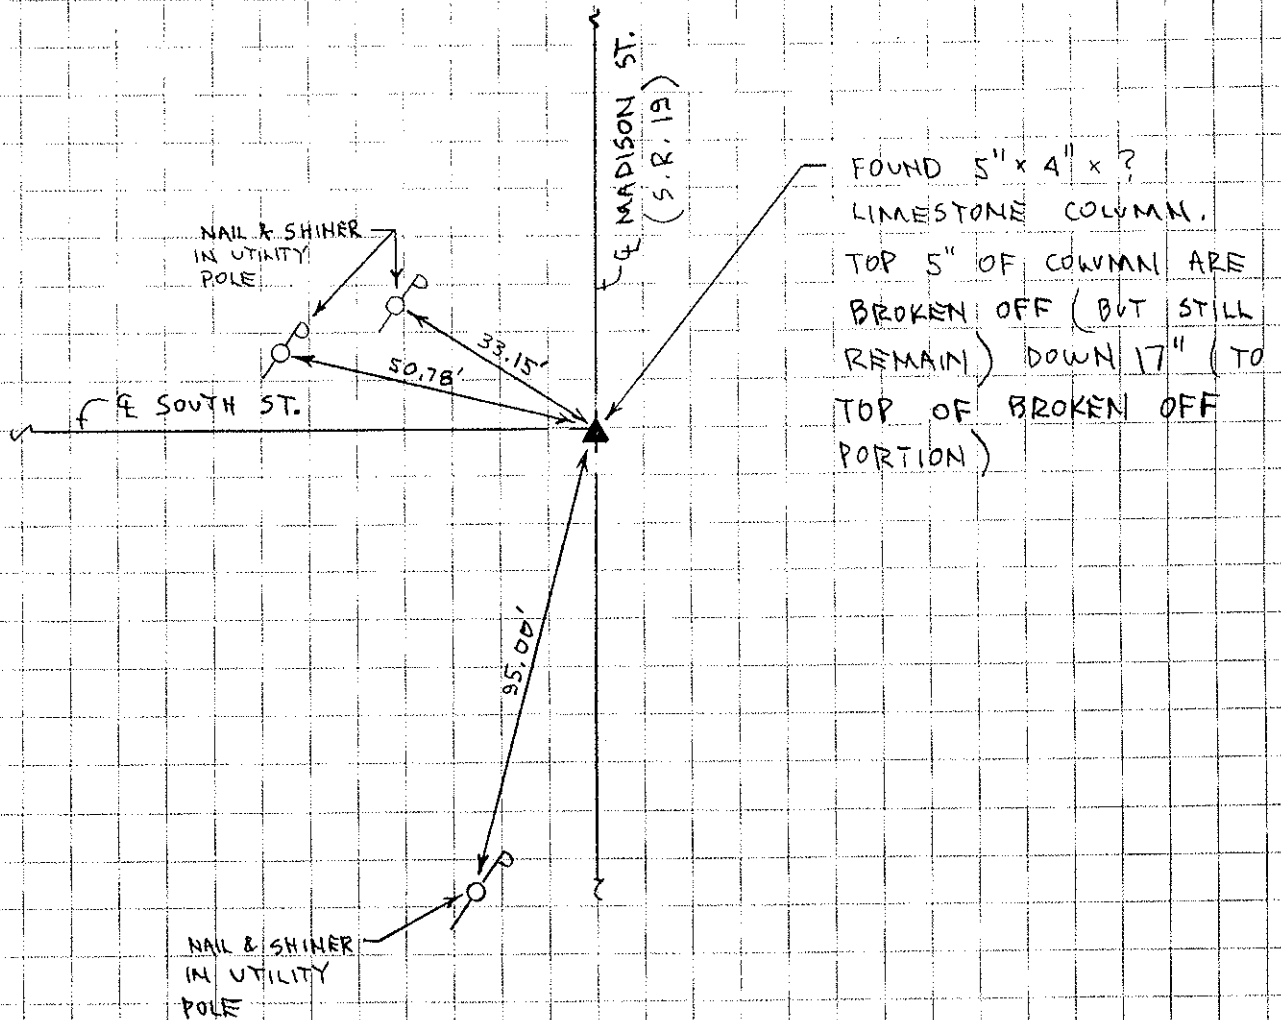 ℄ MADISON ST.
(S.R. 19)
FOUND 5" x 4" x ?
LIMESTONE COLUMN.
TOP 5" OF COLUMN ARE
BROKEN OFF (BUT STILL
REMAIN) DOWN 17" (TO
TOP OF BROKEN OFF
PORTION)
NAIL & SHINER
IN UTILITY
POLE
P
P
33.15'
50.78'
℄ SOUTH ST.
95.00'
P
NAIL & SHINER
IN UTILITY
POLE